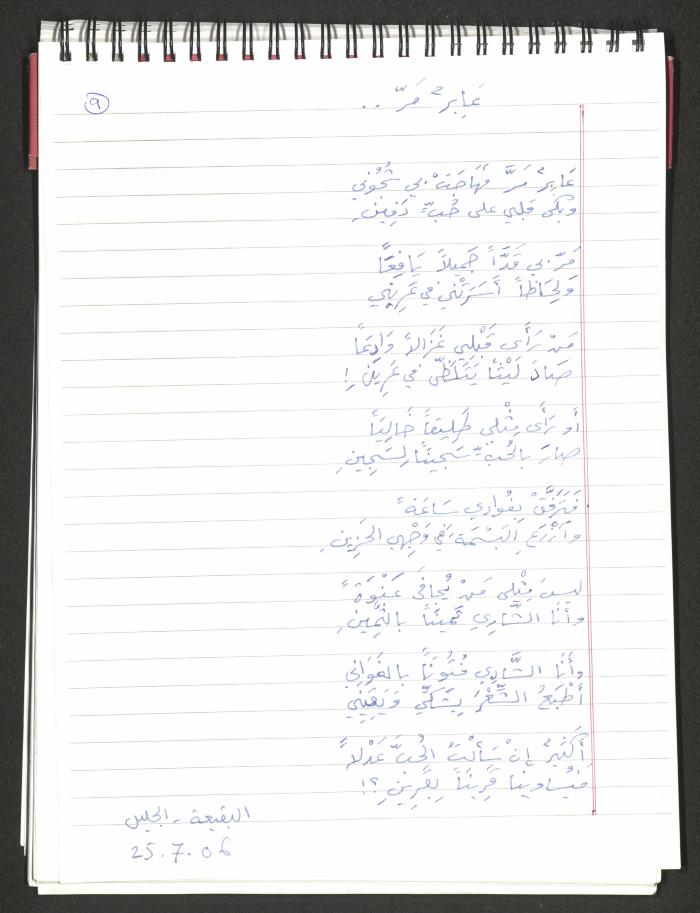 ٩
عَابِرٌ مَرّ ..
عَابِرٌ مَرَّ فَهَاجَتْ بي شُجُوني
وبكى قلبي على حُبٍّ دَفِينِ
مَرّ بي قَدَّاً جَميلاً يَافِعًا
وَلِحَاظاً أَسَرَتْني في عَرِيني
مَنْ رَأى قَبْلي غَزَالاً وَادِعَاً
صَادَ لَيْثاً يَتَلَظّى في عَرِينِ !
أو رَأى مِثْلي طَلِيقاً خَالِيَاً
صارَ بالحُبِّ سَجينَاً لِسَجِينِ
فَتَرَفَّقْ بِفُؤادي سَاعَةً
وازْرَعِ البَسْمَةَ في وَجْهي الحَزِينِ
ليسَ مِثْلي مَنْ يُجافى عَنْوَةً
وأَنَا الشَّارِي ثَمِينَاً بالثَّمِينِ
وأَنَا الشَّادِي فُتُونَاً بالغَوَاني
أَطْبَعُ الشِّعْرَ بِشَكّي وَيَقِيني
أَكَثيرٌ إنْ سَأَلْتُ الحُبَّ عَدْلاً
فَيُساوينا قَرِينَاً بِقَرِينِ ؟!
البقيعة - الجليل
25.7.06